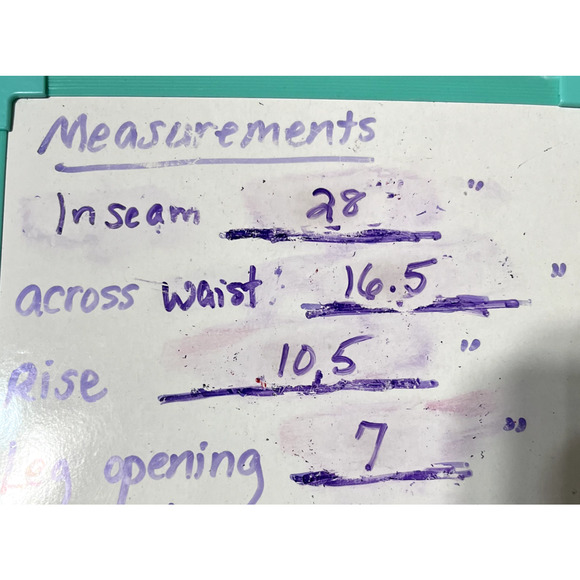 Measurements
Inseam 28 "
across waist: 16.5 "
Rise 10.5 "
Leg opening 7 "